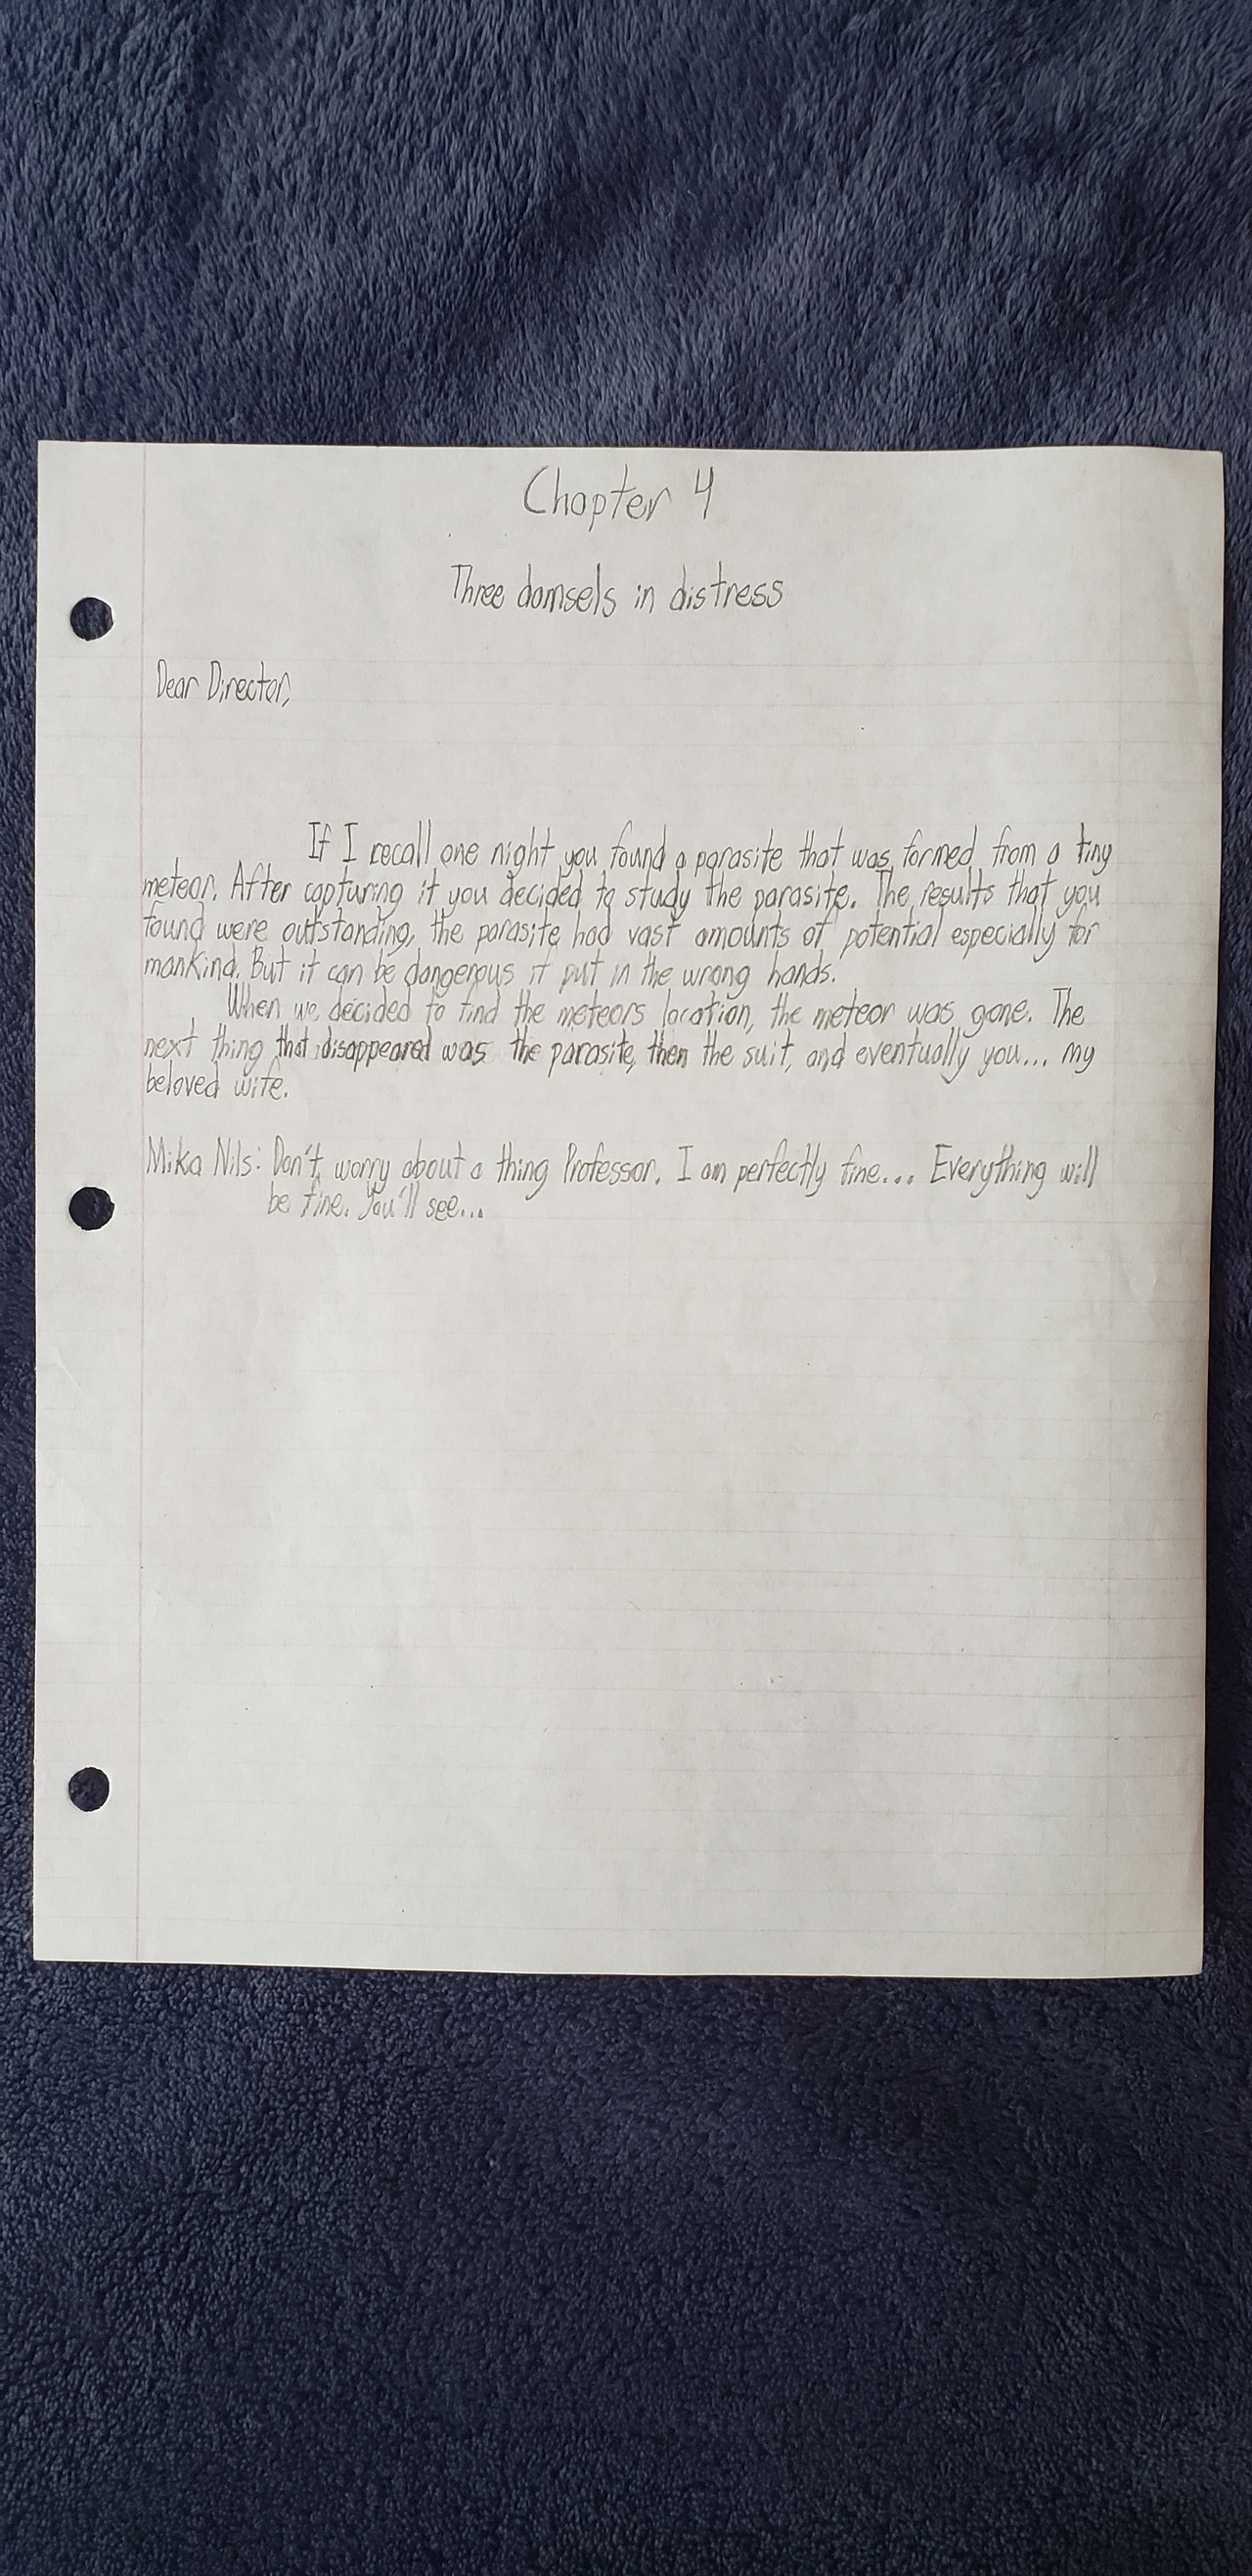 Chapter 4
Three damsels in distress
Dear Director,
If I recall one night you found a parasite that was formed from a tiny
meteor. After capturing it you decided to study the parasite. The results that you
found were outstanding, the parasite had vast amounts of potential especially for
mankind. But it can be dangerous if put in the wrong hands.
When we decided to find the meteors location, the meteor was gone. The
next thing that disappeared was the parasite, then the suit, and eventually you... my
beloved wife.
Mika Nils: Don't worry about a thing Professor. I am perfectly fine... Everything will
be fine. You'll see...